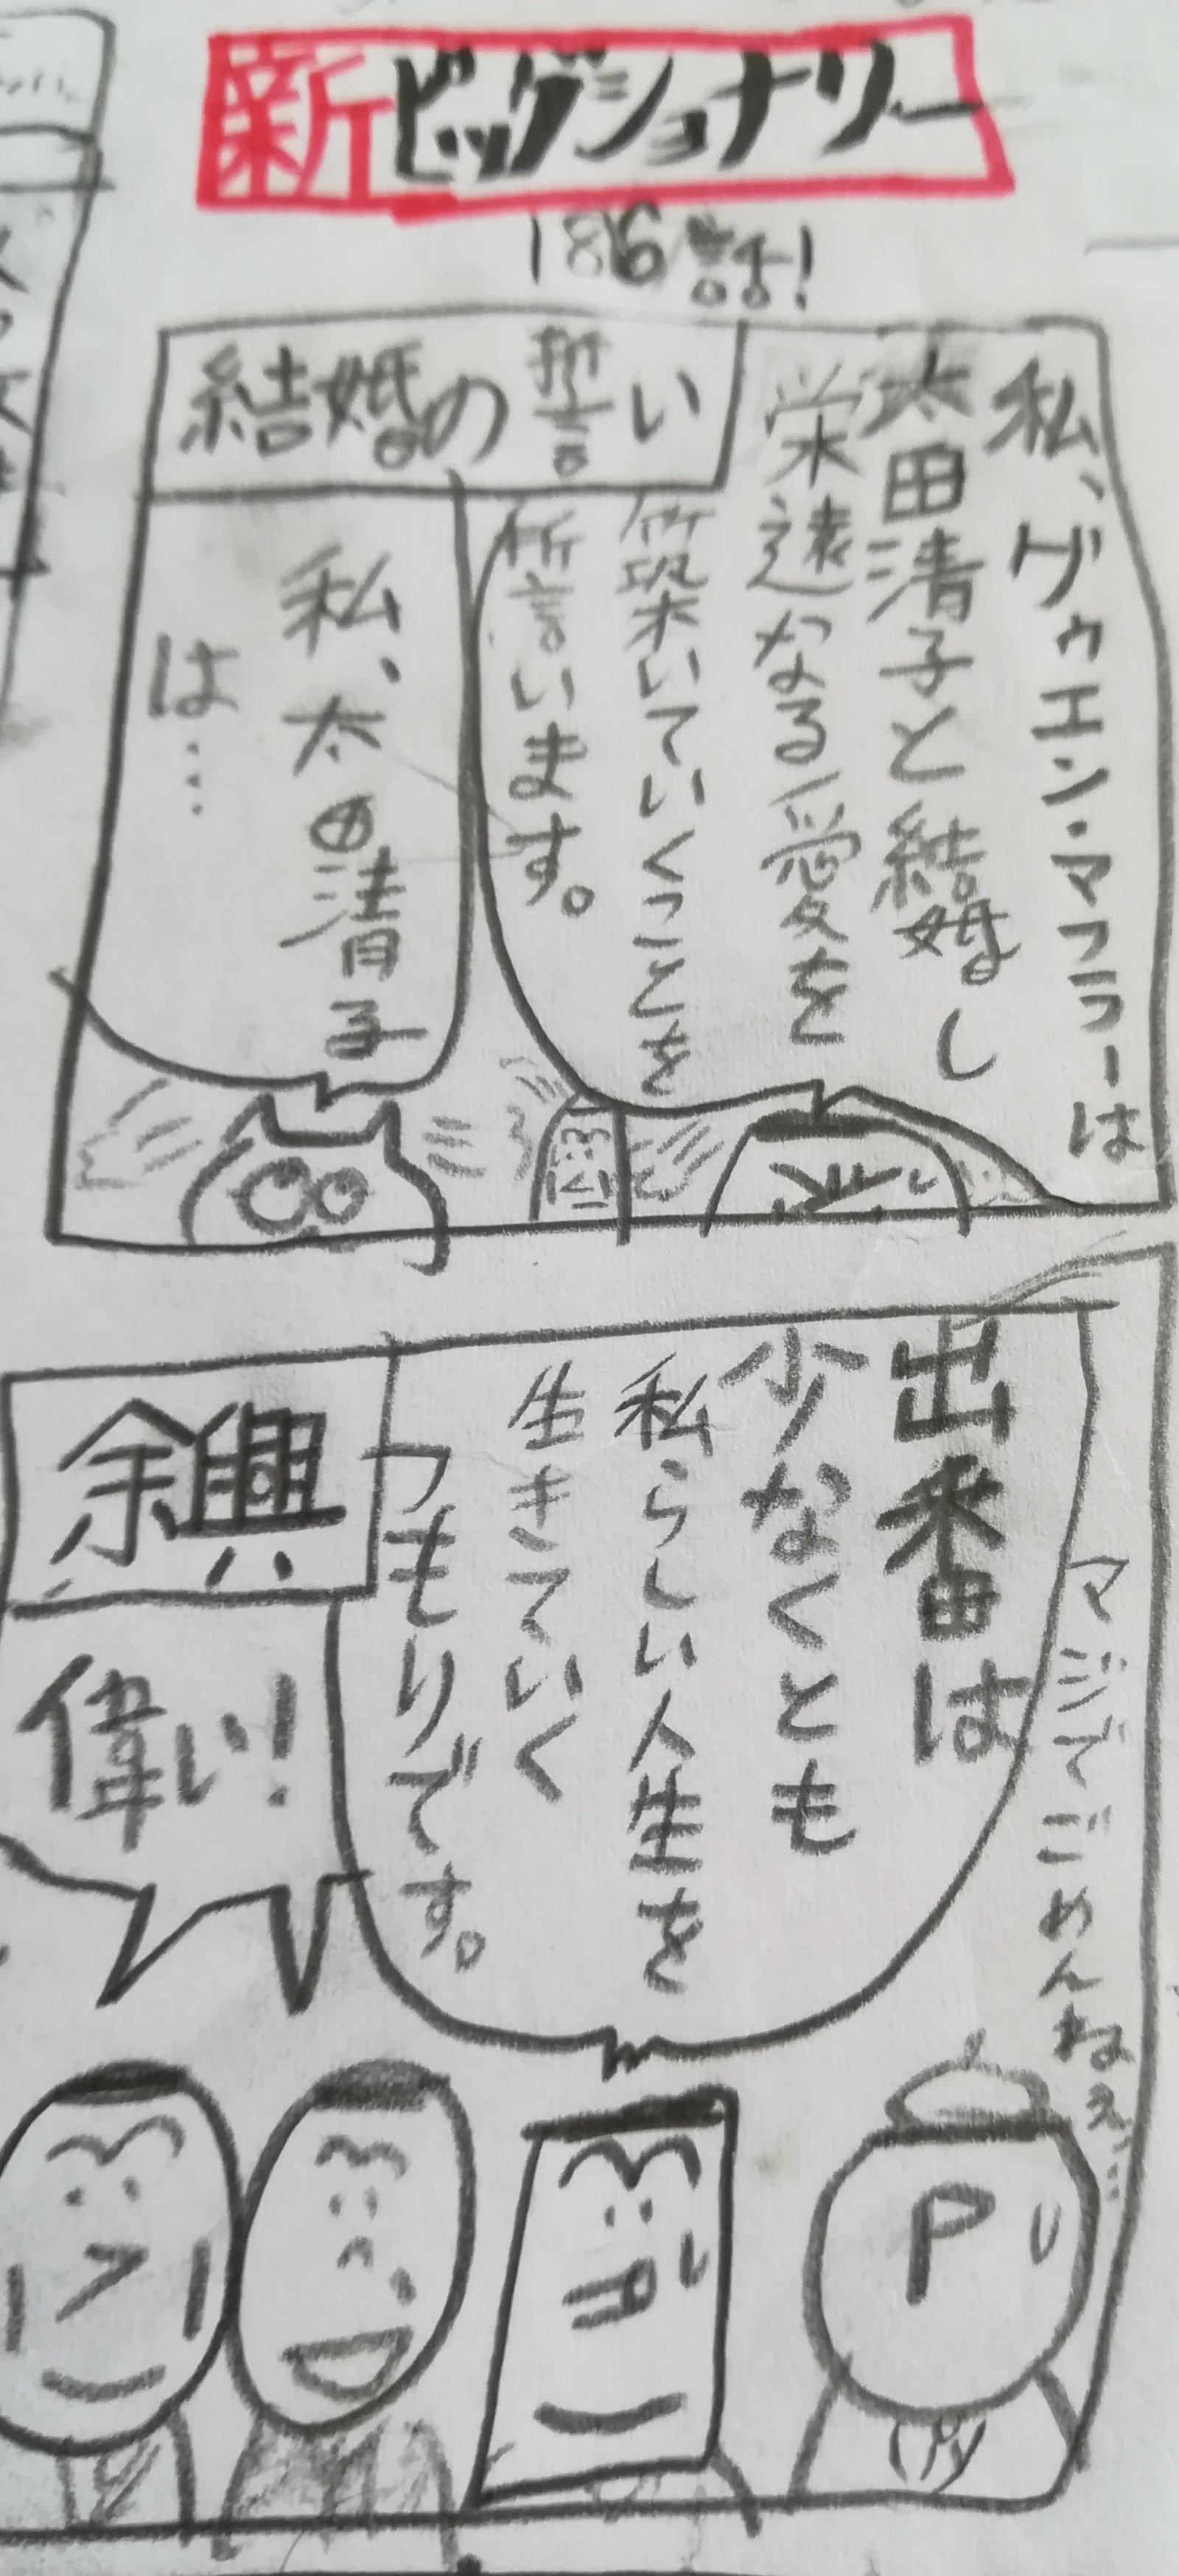 新ビッグショナリー
186話!
結婚の誓い
私、グゥエン・マフラーは
太田清子と結婚し
栄遠なる愛を
築いていくことを
誓います。
私、太田清子
は…
マジでごめんねぇ…
出番は
少なくとも
私らしい人生を
生きていく
つもりです。
余興
偉い!
P